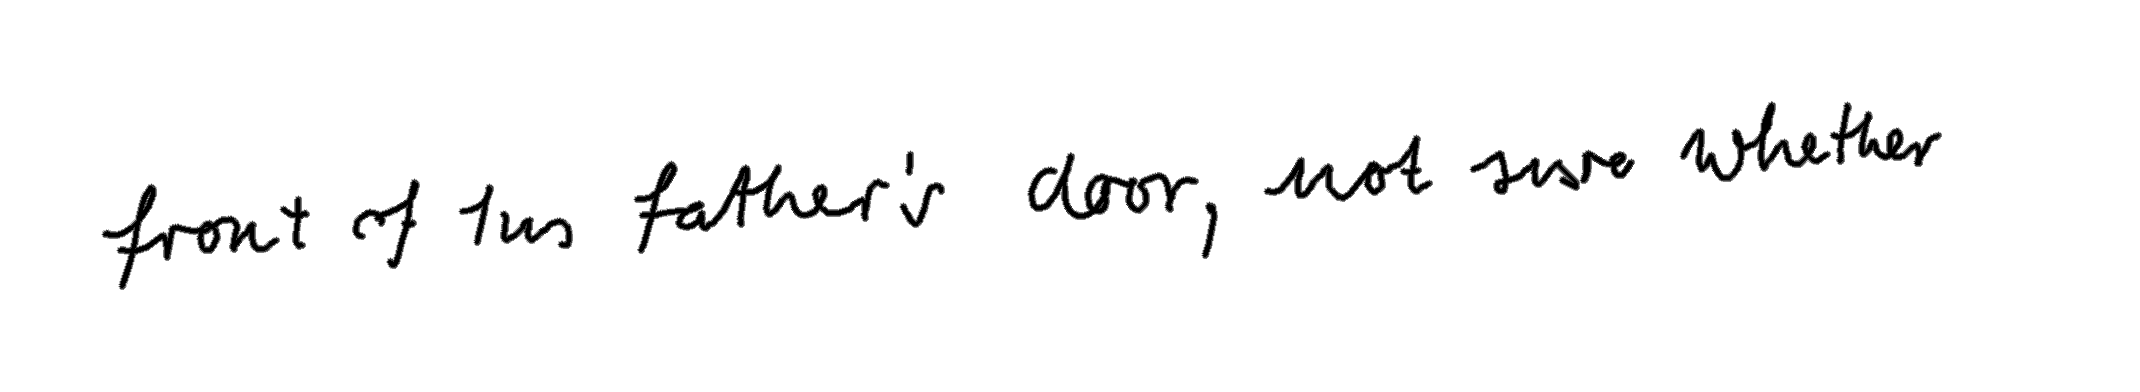 front of his father's door, not sure whether